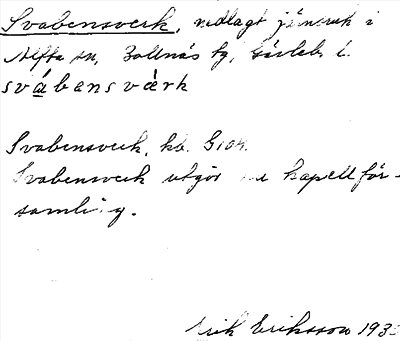 Svabensverk, nedlagt järnbruk i
Alfta sn, Bollnäs fg, Gävleb. l.
svábensvàrk
Svabensverk, kb. G104.
Svabensverk utgör kapellför-
samling.
Erik Eriksson 193